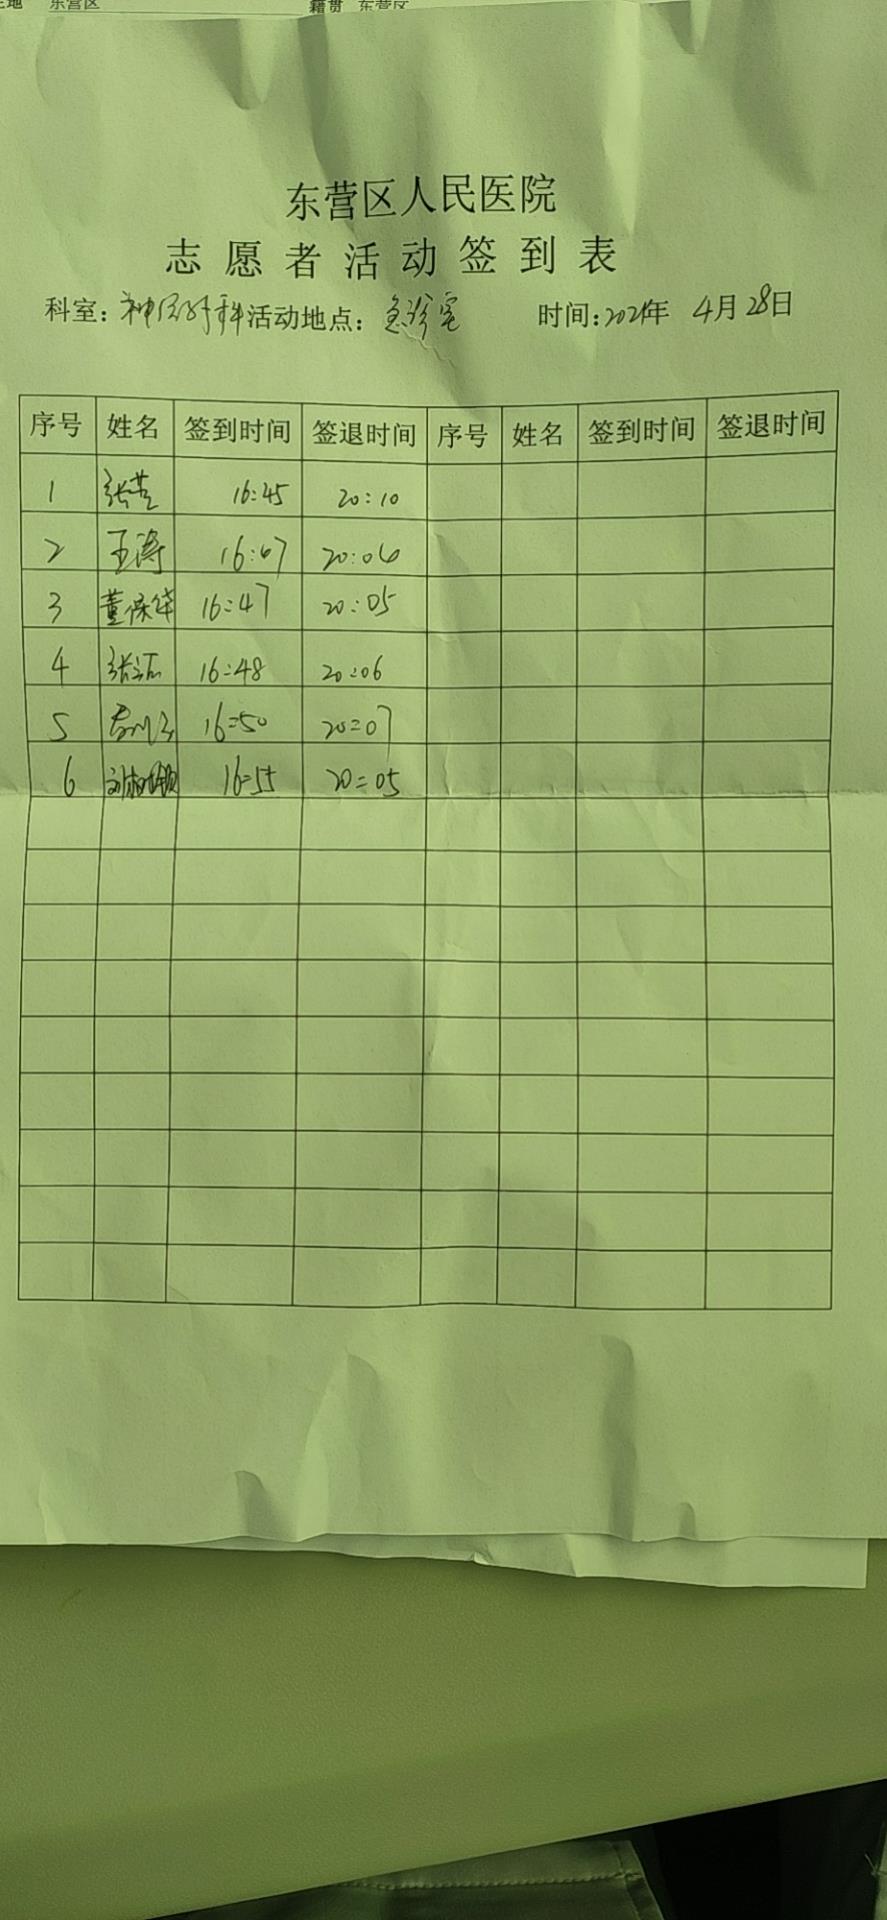 东营区
籍贯 东营区
东营区人民医院
志愿者活动签到表
科室：神经外科 活动地点：急诊室 时间：2021年 4月28日
序号 姓名 签到时间 签退时间 序号 姓名 签到时间 签退时间
1 16:45 20:10
2 王涛 16:47 20:06
3 董保华 16:47 20:05
4 16:48 20:06
5 16:50 20:07
6 16:55 20:05